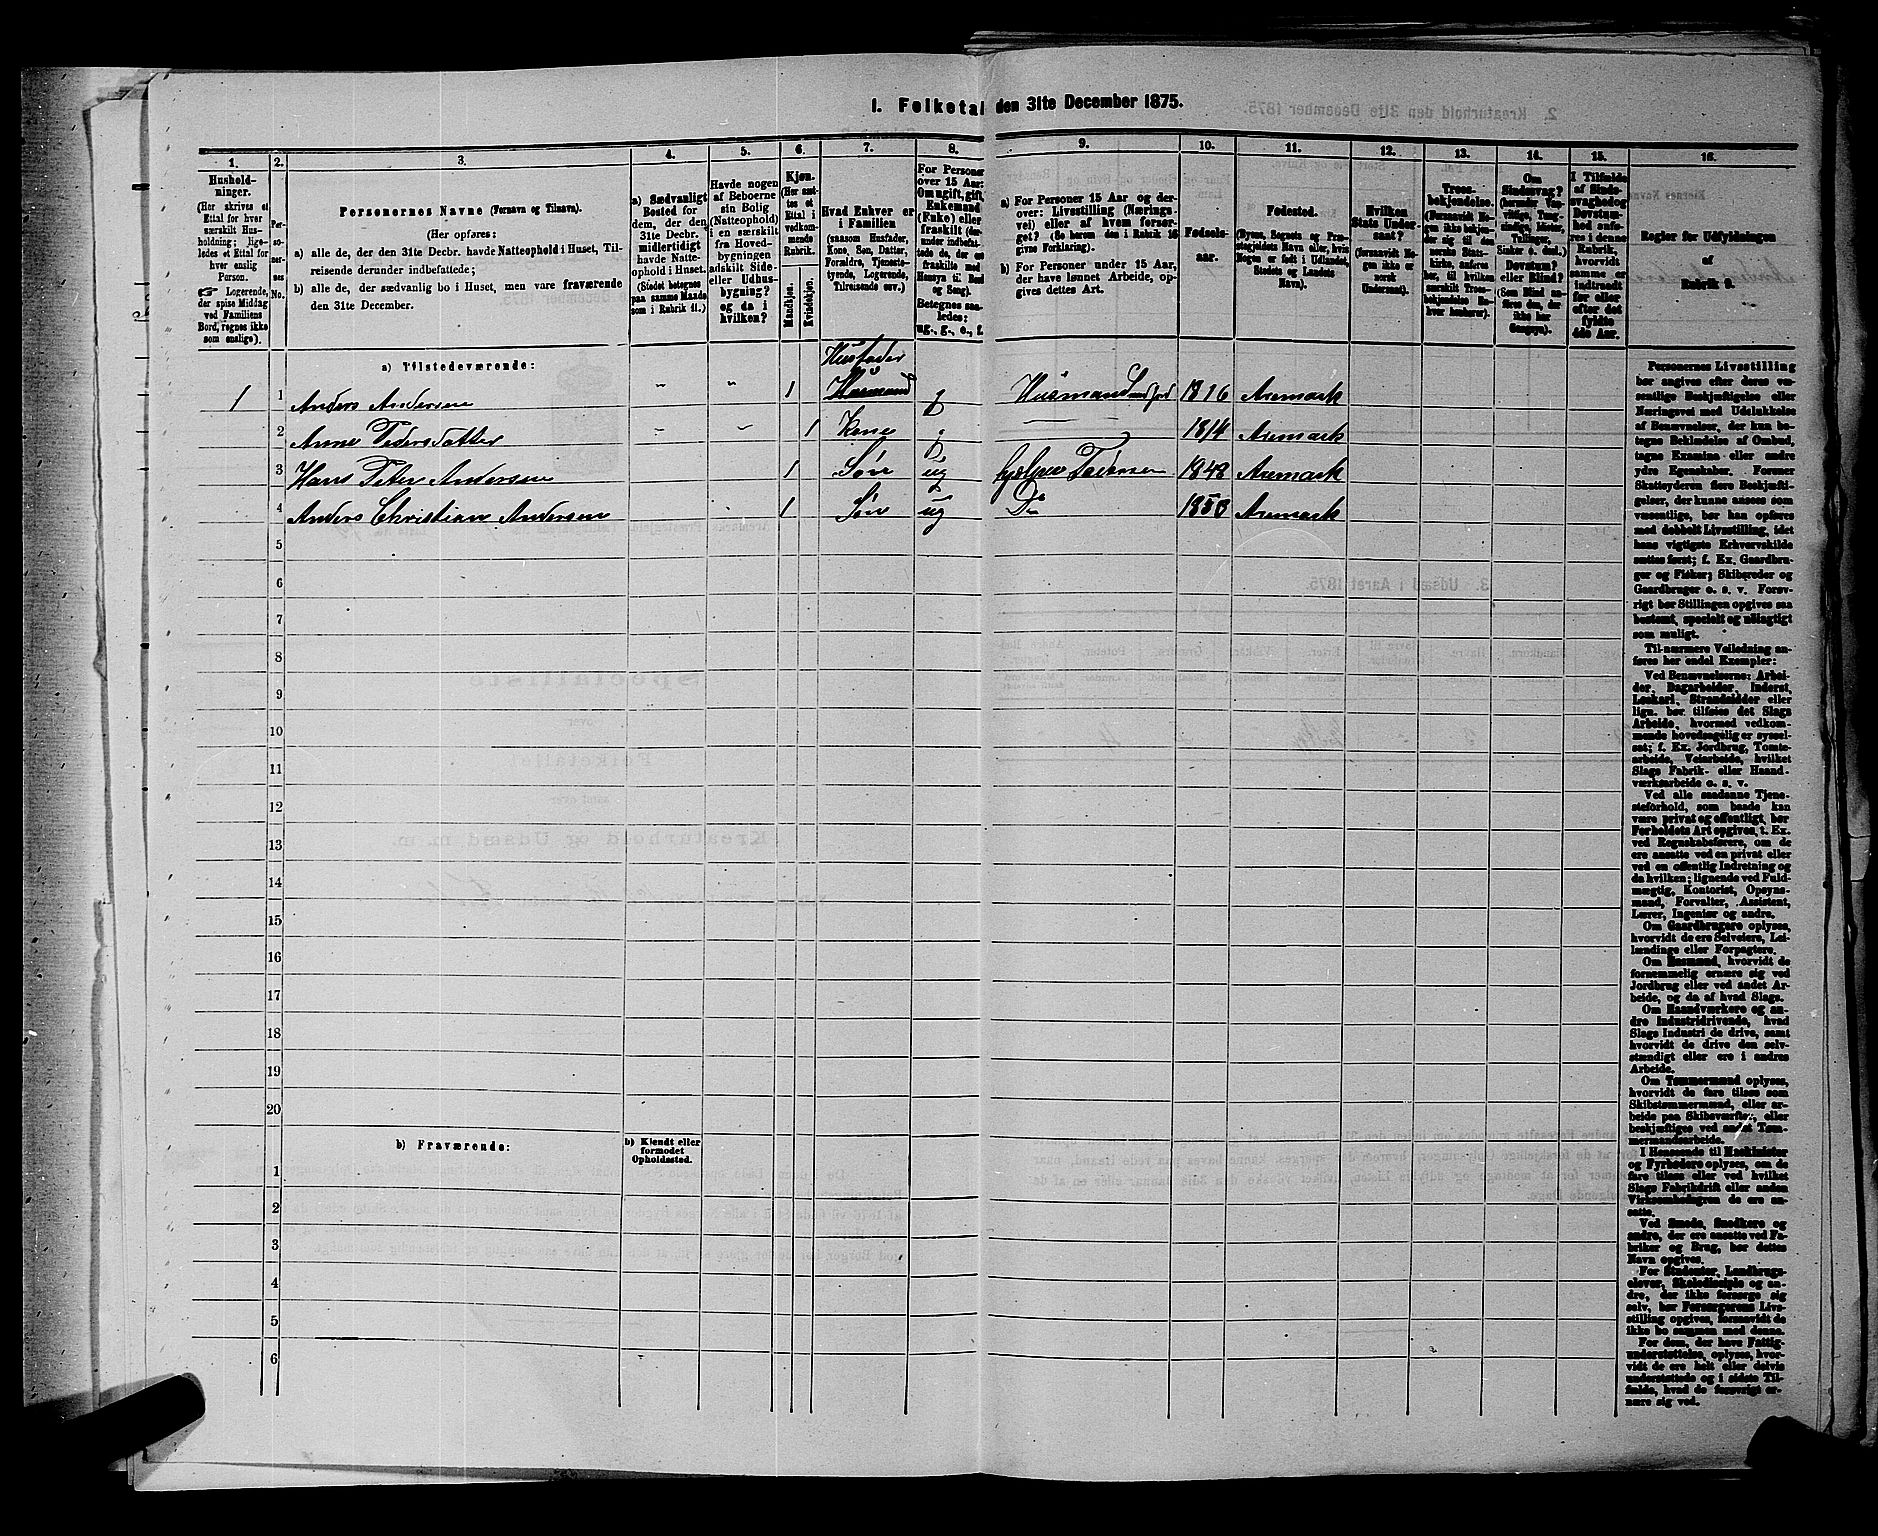 I. Folketal den 31te December 1875.
1. 2. 3. 4. 5. 6. 7. 8. 9. 10. 11. 12. 13. 14. 15. 16.
Hushold-
ninger.
(Her skrives et
Ettal for hver
særskilt Hus-
holdning; lige-
ledes et Ettal for
hver enslig
Person.
☞ Logerende,
der spise Middag
ved Familiens
Bord, regnes ikke
som enslige).
Per-
so-
ner-
nes
No.
Personernes Navne (Fornavn og Tilnavn).
(Her opføres:
a) alle de, der den 31te Decbr. havde Natteophold i Huset, Til-
reisende derunder indbefattede;
b) alle de, der sædvanlig bo i Huset, men vare fraværende
den 31te December.
a) Sædvanligt
Bosted for
dem, der den
31te Decbr.
midlertidigt
havde Natte-
ophold i Huset.
(Stedet betegnes
paa samme Maade
som i Rubrik 11.)
Havde nogen
af Beboerne
sin Bolig
(Natteophold)
i en særskilt
fra Hoved-
bygningen
adskilt Side-
eller Udhus-
bygning?
og da i
hvilken?
Kjøn.
(Her sæt-
tes et
Ettal i
vedkom-
mende
Rubrik.
Mandkjøn.
Kvindekjøn.
Hvad Enhver er
i Familien
(saasom Husfader,
Kone, Søn, Datter,
Forældre, Tjeneste-
tyende, Logerende,
Tilreisende osv.)
For Personer
over 15 Aar:
Om ugift, gift,
Enkemand
(Enke) eller
fraskilt (der-
under indbefat-
tede de, der ere
fraskilte med
Hensyn til Bord
og Seng).
Betegnes saa-
ledes:
ug., g., e., f.
a) For Personer 15 Aar og der-
over: Livsstilling (Nærings-
vei) eller af hvem forsør-
get? (Se herom den i Rubrik 16
givne Forklaring).
b) For Personer under 15 Aar,
der have lønnet Arbeide, op-
gives dettes Art.
Fødsels-
aar.
Fødested.
(Byens, Sognets og Præ-
stegjeldets Navn eller, hvis
Nogen er født i Udlandet,
Stedets og Landets
Navn).
Hvilken
Stats Under-
saat?
(forsaavidt No-
gen ikke er
norsk
Undersaat).
Troes-
bekjendelse.
(Forsaavidt No-
gen ikke bekjen-
der sig til den
norske Stats-
kirke, anføres
her, til hvilken
særskilt Troes-
bekjendelse En-
hver henhører).
Om
Sindssvag?
(herunder Van-
vittige, Tung-
sindige, Idioter,
Tullinger,
Sinker o. desl.)
Døvstum?
eller Blind?
(Som Blind an-
føres den, der
ikke har
Gangsyn).
I Tilfælde
af Sinds-
svaghed og
Døvstum-
hed anfø-
res i denne
Rubrik,
hvorvidt
samme er
indtraadt
før eller
efter det
fyldte
4de Aar.
Regler for Udfyldningen
af
Rubrik 9.
a) Tilstedeværende:
Husfader
1 1 Anders Andersen " " 1 Husmand g Husmand med Jord 1816 Aremark
2 Anne Pedersdatter " " 1 Kone g 1814 Aremark
3 Hans Peter Andersen 1 Søn ug hjelper Faderen 1848 Aremark
4 Anders Christian Andersen 1 Søn ug Do 1853 Aremark
5
6
7
8
9
10
11
12
13
14
15
16
17
18
19
20
b) Fraværende:
b) Kjendt eller
formodet
Opholdssted.
1
2
3
4
5
6
Personernes Livsstilling
bør angives efter deres væ-
sentlige Beskjæftigelse eller
Næringsvei med Udelukkelse
af Benævnelser, der kun be-
tegne Beklædelse af Ombud,
tagne Examina eller andre
ydre Egenskaber. Forener
Skatteyderen flere Beskjæfti-
gelser, der kunne ansees som
væsentlige, bør han opføres
med dobbelt Livsstilling, idet
hans vigtigste Erhvervskilde
sættes først; f. Ex. Gaardbru-
ger og Fisker; Skibsreder og
Gaardbruger o. s. v. Forøv-
rigt bør Stillingen opgives saa
bestemt, specielt og nøiagtigt
som muligt.
Til nærmere Veiledning an-
føres her endel Exempler:
Ved Benævnelserne: Arbei-
der, Dagarbeider, Inderst,
Løskarl, Strandsidder eller
lign. bør tilføies det Slags
Arbeide, hvormed vedkom-
mende hovedsagelig er syssel-
sat; f. Ex. Jordbrug, Tomte-
arbeide, Veiarbeide, hvilket
Slags Fabrik- eller Haand-
værksarbeide o. s. v.
Ved alle saadanne Tjene-
steforhold, som baade kan
være privat og offentligt, bør
Forholdets Art opgives, t. Ex.
ved Regnskabsførere, om de
ere ansatte ved en privat eller
ved en offentlig Indretning og
da hvilken; lignende ved Fuld-
mægtig, Kontorist, Opsyns-
mand, Forvalter, Assistent,
Lærer, Ingeniør og andre.
Om Gaardbrugere oplyses,
hvorvidt de ere Selveiere, Lei-
lændinge eller Forpagtere.
Om Husmænd, hvorvidt de
fornemmelig ernære sig ved
Jordbrug eller ved andet Ar-
beide, og da af hvad Slags.
Om Haandværkere og an-
dre Industridrivende, hvad
Slags Industri de drive, samt
hvorvidt de drive den selv-
stændigt eller ere i andres
Arbeide.
Om Tømmermænd oplyses,
hvorvidt de fare tilsøs som
Skibstømmermænd, eller ar-
beide paa Skibsværfter, eller
beskjæftiges ved andet Tøm-
mermandsarbeide.
I Henseende til Maskinister
og Fyrbødere oplyses, om de
fare tilsøs eller ved hvilket
Slags Fabrikdrift eller anden
Virksomhed de ere an-
satte.
Ved Smede, Snedkere og
andre, der ere ansatte ved Fa-
briker og Brug, bør dettes
Navn opgives.
For Studenter, Landbrugs-
elever, Skoledisciple og an-
dre, der ikke forsørge sig
selv, bør Forsørgerens Livs-
stilling opgives, forsaavidt de
ikke bo sammen med denne.
For dem, der have Fattig-
understøttelse, oplyses, hvor-
vidt de ere helt eller delvis
understøttede og i sidste Til-
fælde, hvad de forøvrigt er-
nære sig ved.